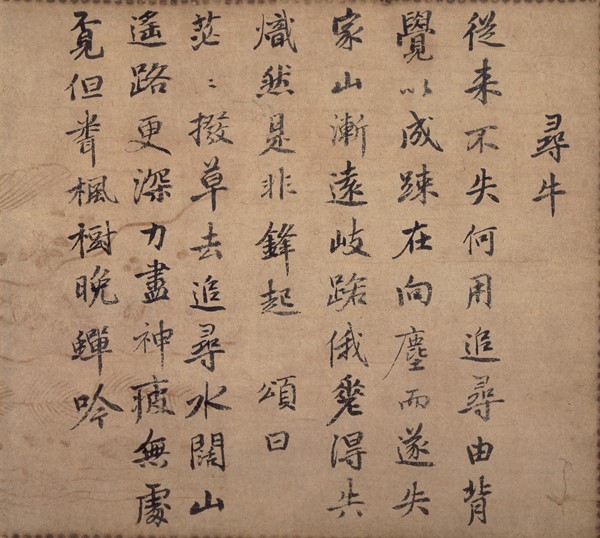 尋牛
從来不失何用追尋由背
覺以成踈在向塵而遂失
家山漸遠岐路俄差得失
熾然是非鋒起 頌曰
茫〻撥草去追尋水闊山
遙路更深力盡神疲無處
覓但䎽楓樹晚蟬吟